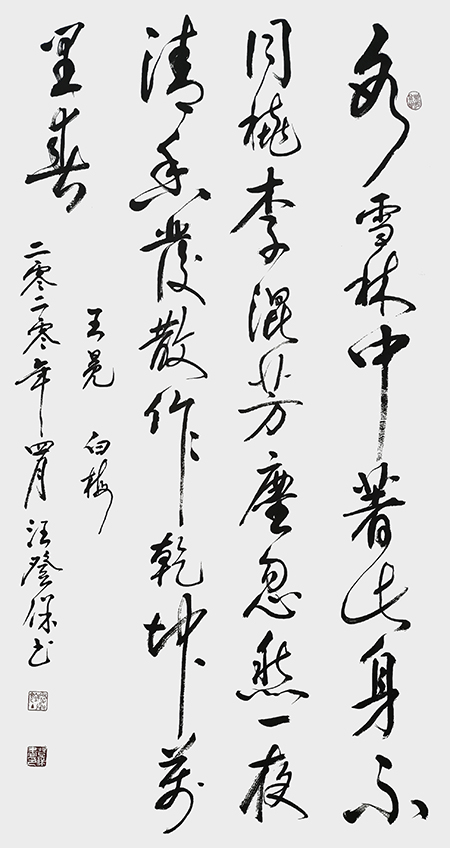 冰雪林中著此身不
同桃李混芳塵忽然一夜
清香發散作乾坤萬
里春
王冕 白梅
二零二零年四月汪登保书